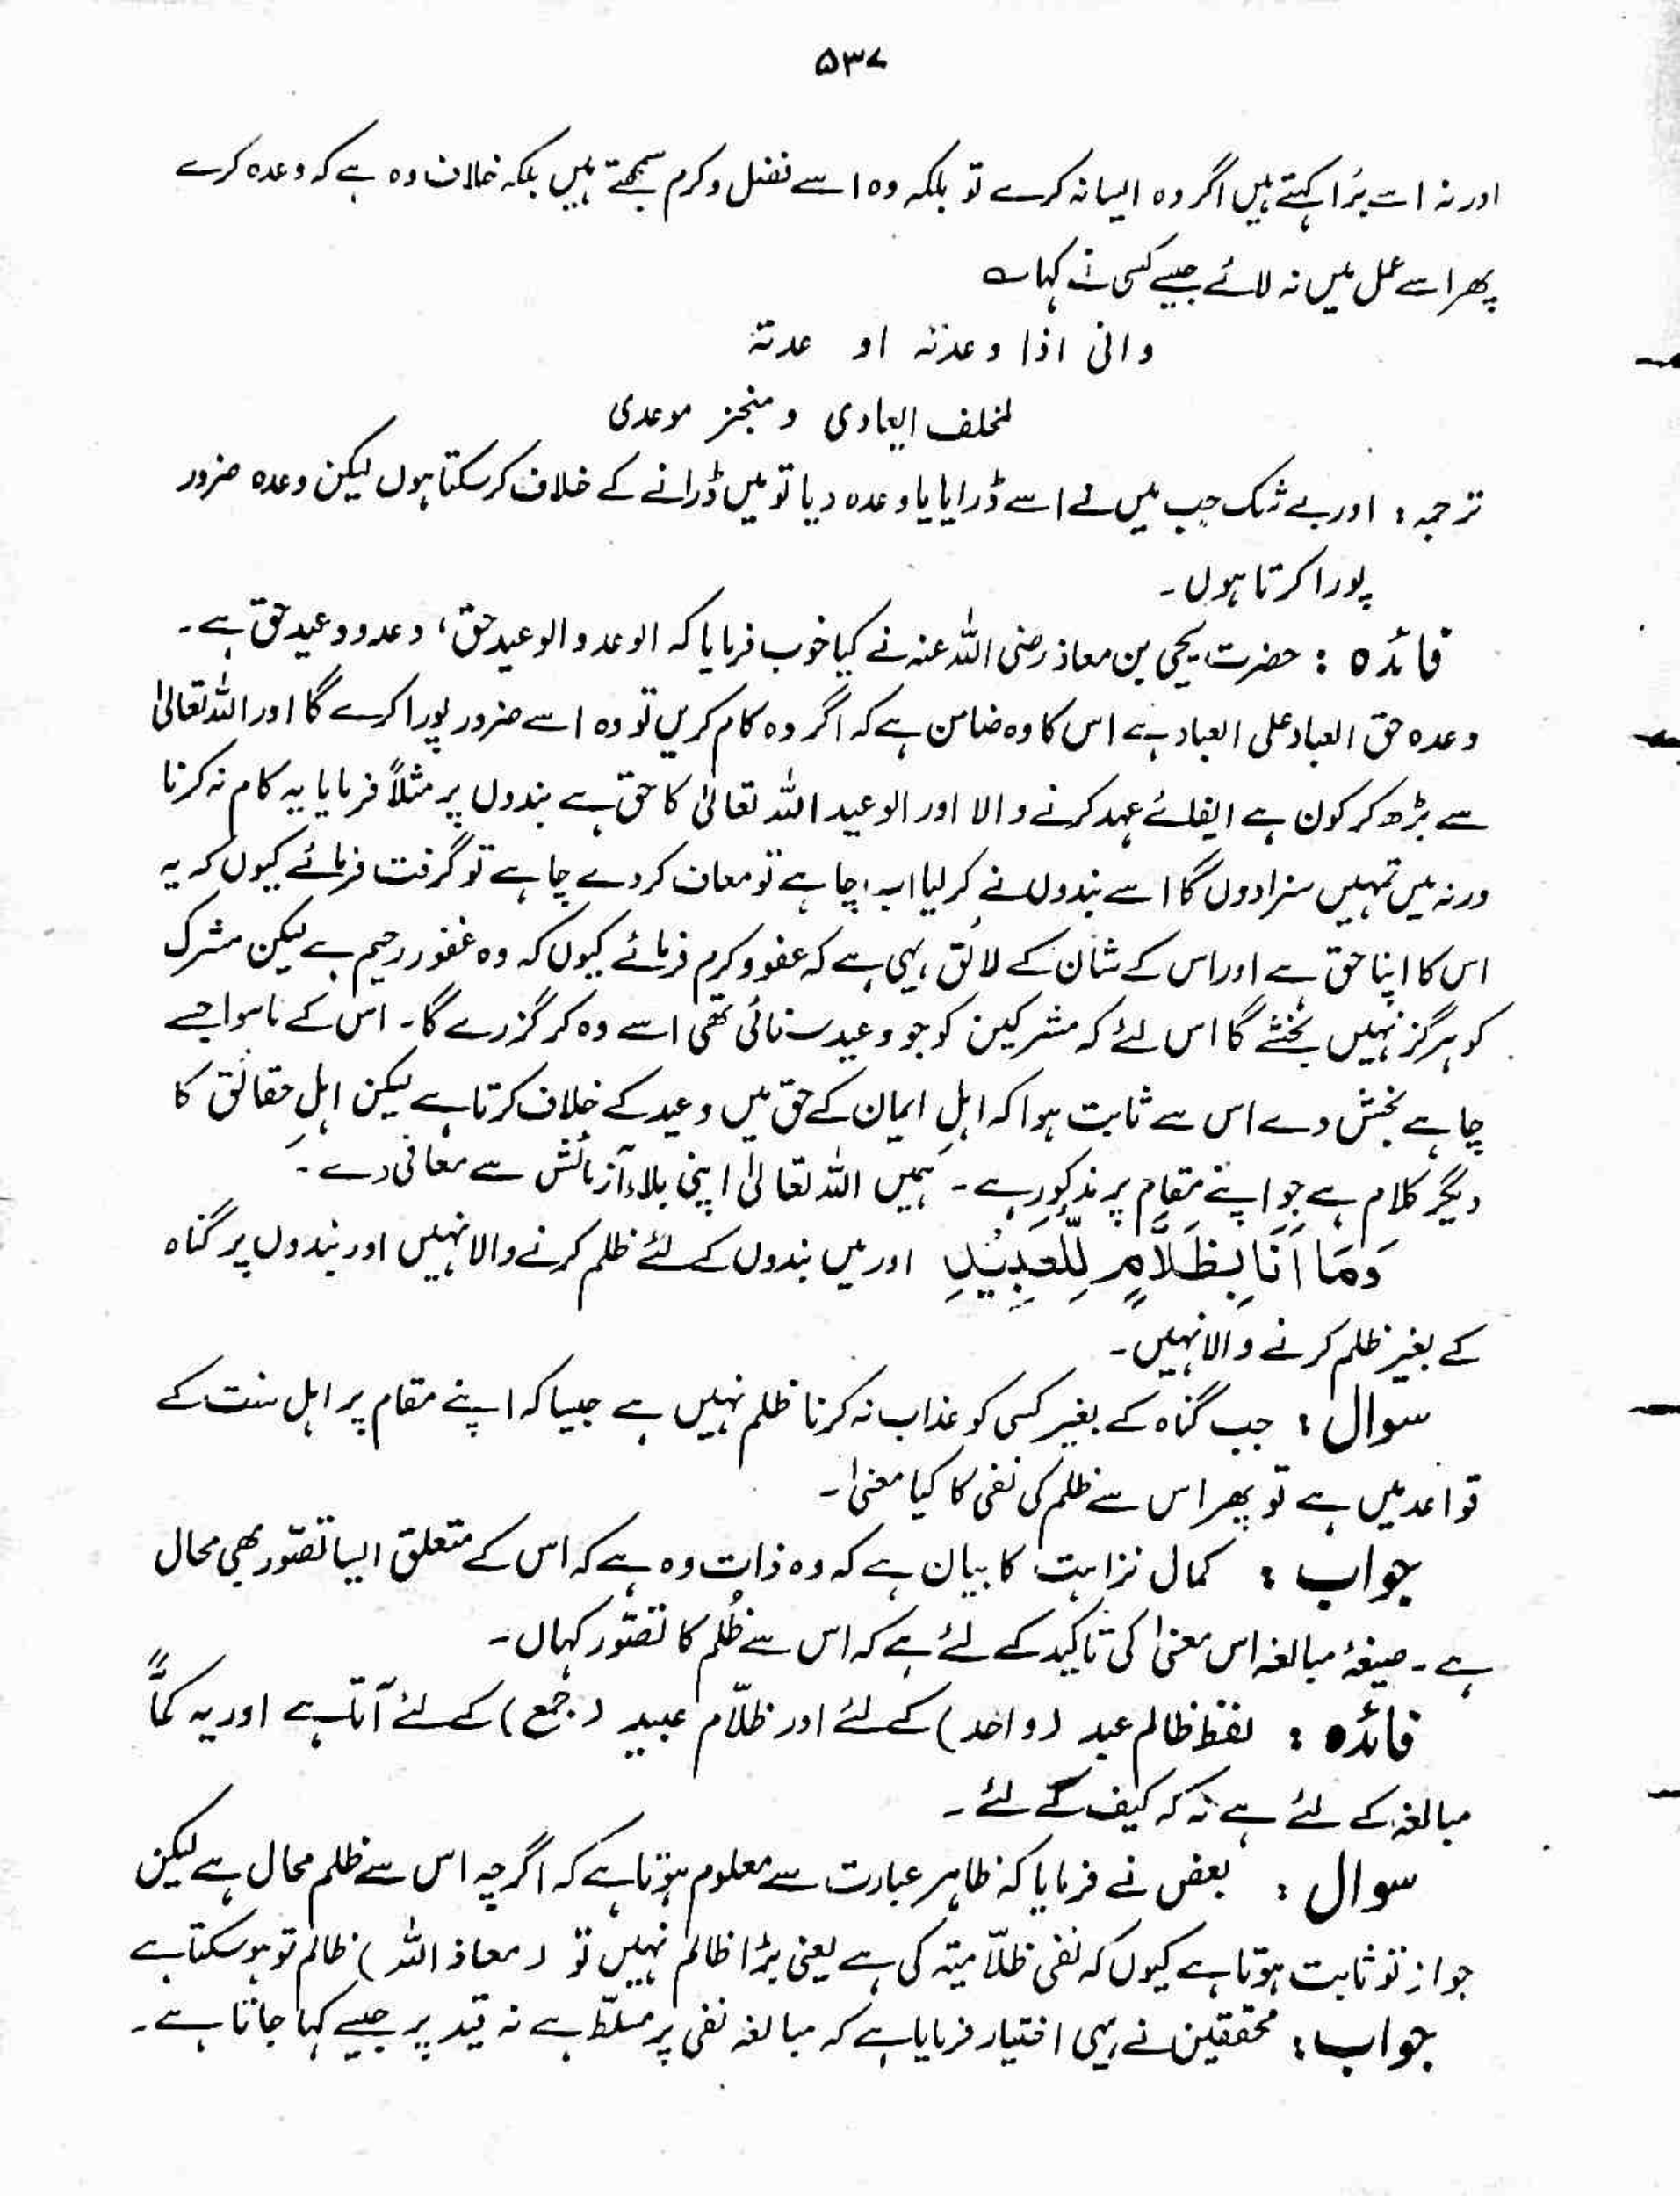 ۵۳۷
اور نہ اسے بُرا کہتے ہیں اگر وہ ایسا نہ کرے تو بلکہ وہ اسے فضل و کرم سمجھتے ہیں بلکہ خلاف وہ ہے کہ وعدہ کرے
پھر اسے عمل میں نہ لائے جیسے کسی نے کہا ؎
وانی اذا وعدتہ او عدتہ
لمخلف ایعادی و منجز موعدی
ترجمہ : اور بے شک جب میں نے اسے ڈرایا یا وعدہ دیا تو میں ڈرانے کے خلاف کر سکتا ہوں لیکن وعدہ ضرور
پورا کرتا ہوں ۔
فائدہ : حضرت یحیی بن معاذ رضی اللہ عنہ نے کیا خوب فرمایا کہ الوعد و الوعید حق ، وعد و وعید حق ہے ۔
وعدہ حق العباد علی العباد ہے اس کا وہ ضامن ہے کہ اگر وہ کام کریں تو وہ اسے ضرور پورا کرے گا اور اللہ تعالیٰ
سے بڑھ کر کون ہے ایفائے عہد کرنے والا اور الوعید اللہ تعالیٰ کا حق ہے بندوں پر مثلاً فرمایا یہ کام نہ کرنا
ورنہ میں تمہیں سزا دوں گا اسے بندوں نے کر لیا اب چاہے تو معاف کر دے چاہے تو گرفت فرمائے کیوں کہ یہ
اس کا اپنا حق ہے اور اس کے شان کے لائق یہی ہے کہ عفو و کرم فرمائے کیوں کہ وہ غفور رحیم ہے لیکن مشرک
کو ہرگز نہیں بخشے گا اس لئے کہ مشرکین کو جو وعید سنائی تھی اسے وہ کر گزرے گا ۔ اس کے ماسوا جسے
چاہے بخش دے اس سے ثابت ہوا کہ اہلِ ایمان کے حق میں وعید کے خلاف کرتا ہے لیکن اہلِ حقائق کا
دیگر کلام ہے جو اپنے مقام پر مذکور ہے ۔ ہمیں اللہ تعالیٰ اپنی بلاء آزمائش سے معافی دے ۔
وَمَا اَنَا بِظَلَّامٍ لِّلْعَبِیْدِ اور میں بندوں کے لئے ظلم کرنے والا نہیں اور بندوں پر گناہ
کے بغیر ظلم کرنے والا نہیں ۔
سوال : جب گناہ کے بغیر کسی کو عذاب نہ کرنا ظلم نہیں ہے جیسا کہ اپنے مقام پر اہل سنت کے
قواعد میں ہے تو پھر اس سے ظلم کی نفی کا کیا معنیٰ ۔
جواب : کمال نزاہت کا بیان ہے کہ وہ ذات وہ ہے کہ اس کے متعلق ایسا تصوّر بھی محال
ہے ۔ صیغۂ مبالغہ اس معنیٰ کی تاکید کے لئے ہے کہ اس سے ظُلم کا تصوّر کہاں ۔
فائدہ : لفظ ظالم عبد (واحد) کے لئے اور ظلّام عبید (جمع) کے لئے آتا ہے اور یہ کمًّا
مبالغہ کے لئے ہے نہ کہ کیف کے لئے ۔
سوال : بعض نے فرمایا کہ ظاہر عبارت سے معلوم ہوتا ہے کہ اگرچہ اس سے ظلم محال ہے لیکن
جواز تو ثابت ہوتا ہے کیوں کہ نفی ظلّامیتہ کی ہے یعنی بڑا ظالم نہیں تو (معاذ اللہ) ظالم تو ہو سکتا ہے
جواب : محققین نے یہی اختیار فرمایا ہے کہ مبالغہ نفی پر مسلّط ہے نہ قید پر جیسے کہا جاتا ہے ۔